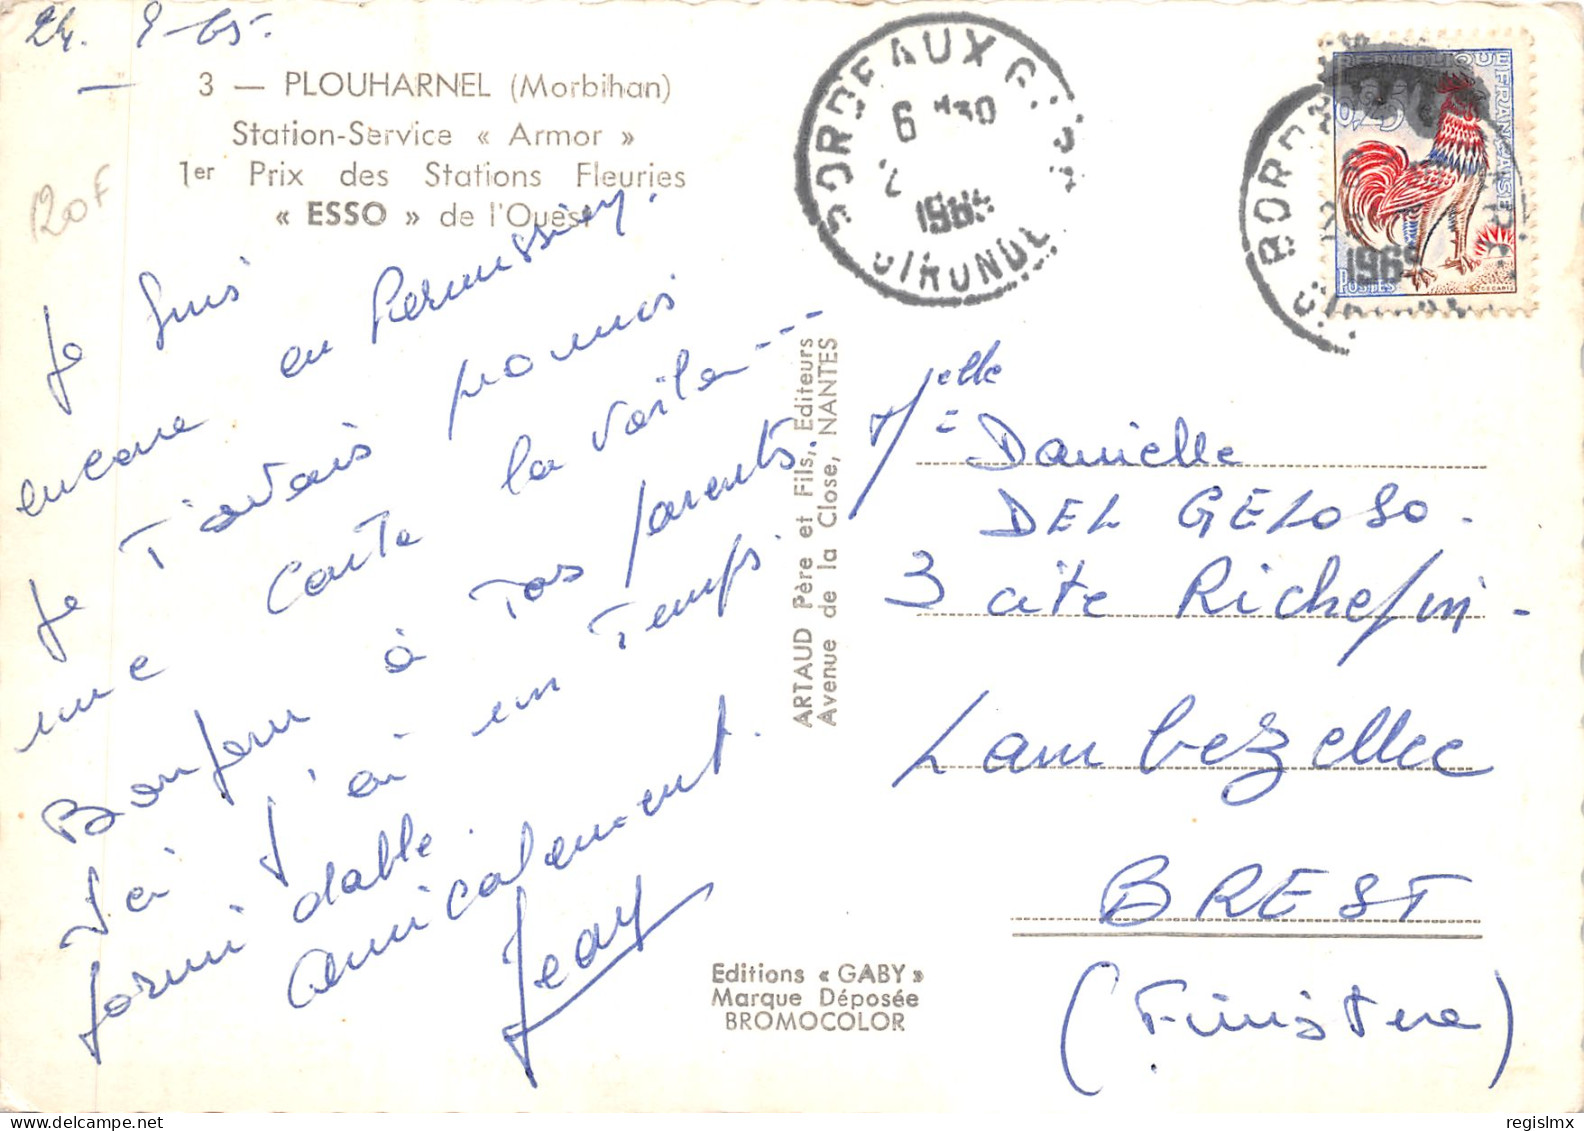 24. 8-65.
3 — PLOUHARNEL (Morbihan)
Station-Service « Armor »
1er Prix des Stations Fleuries
« ESSO » de l'Ouest
120F
Je suis
encore en Permission.
Je T'avais promis
une carte la voilà---
Bonjour à Tes parents.
Ici J'ai un Temps
formidable.
amicalement.
Jeay
ARTAUD Père et Fils, Editeurs
Avenue de la Close, NANTES
Editions « GABY »
Marque Déposée
BROMOCOLOR
BORDEAUX
6 H30
1965
GIRONDE
REPUBLIQUE FRANÇAISE
0,25
POSTES
DECARIS
BORD
1965
Melle
Danielle
DEL GELOSO.
3 cite Richepin-
Lambezellec
BREST
(Finistere)
regislmx